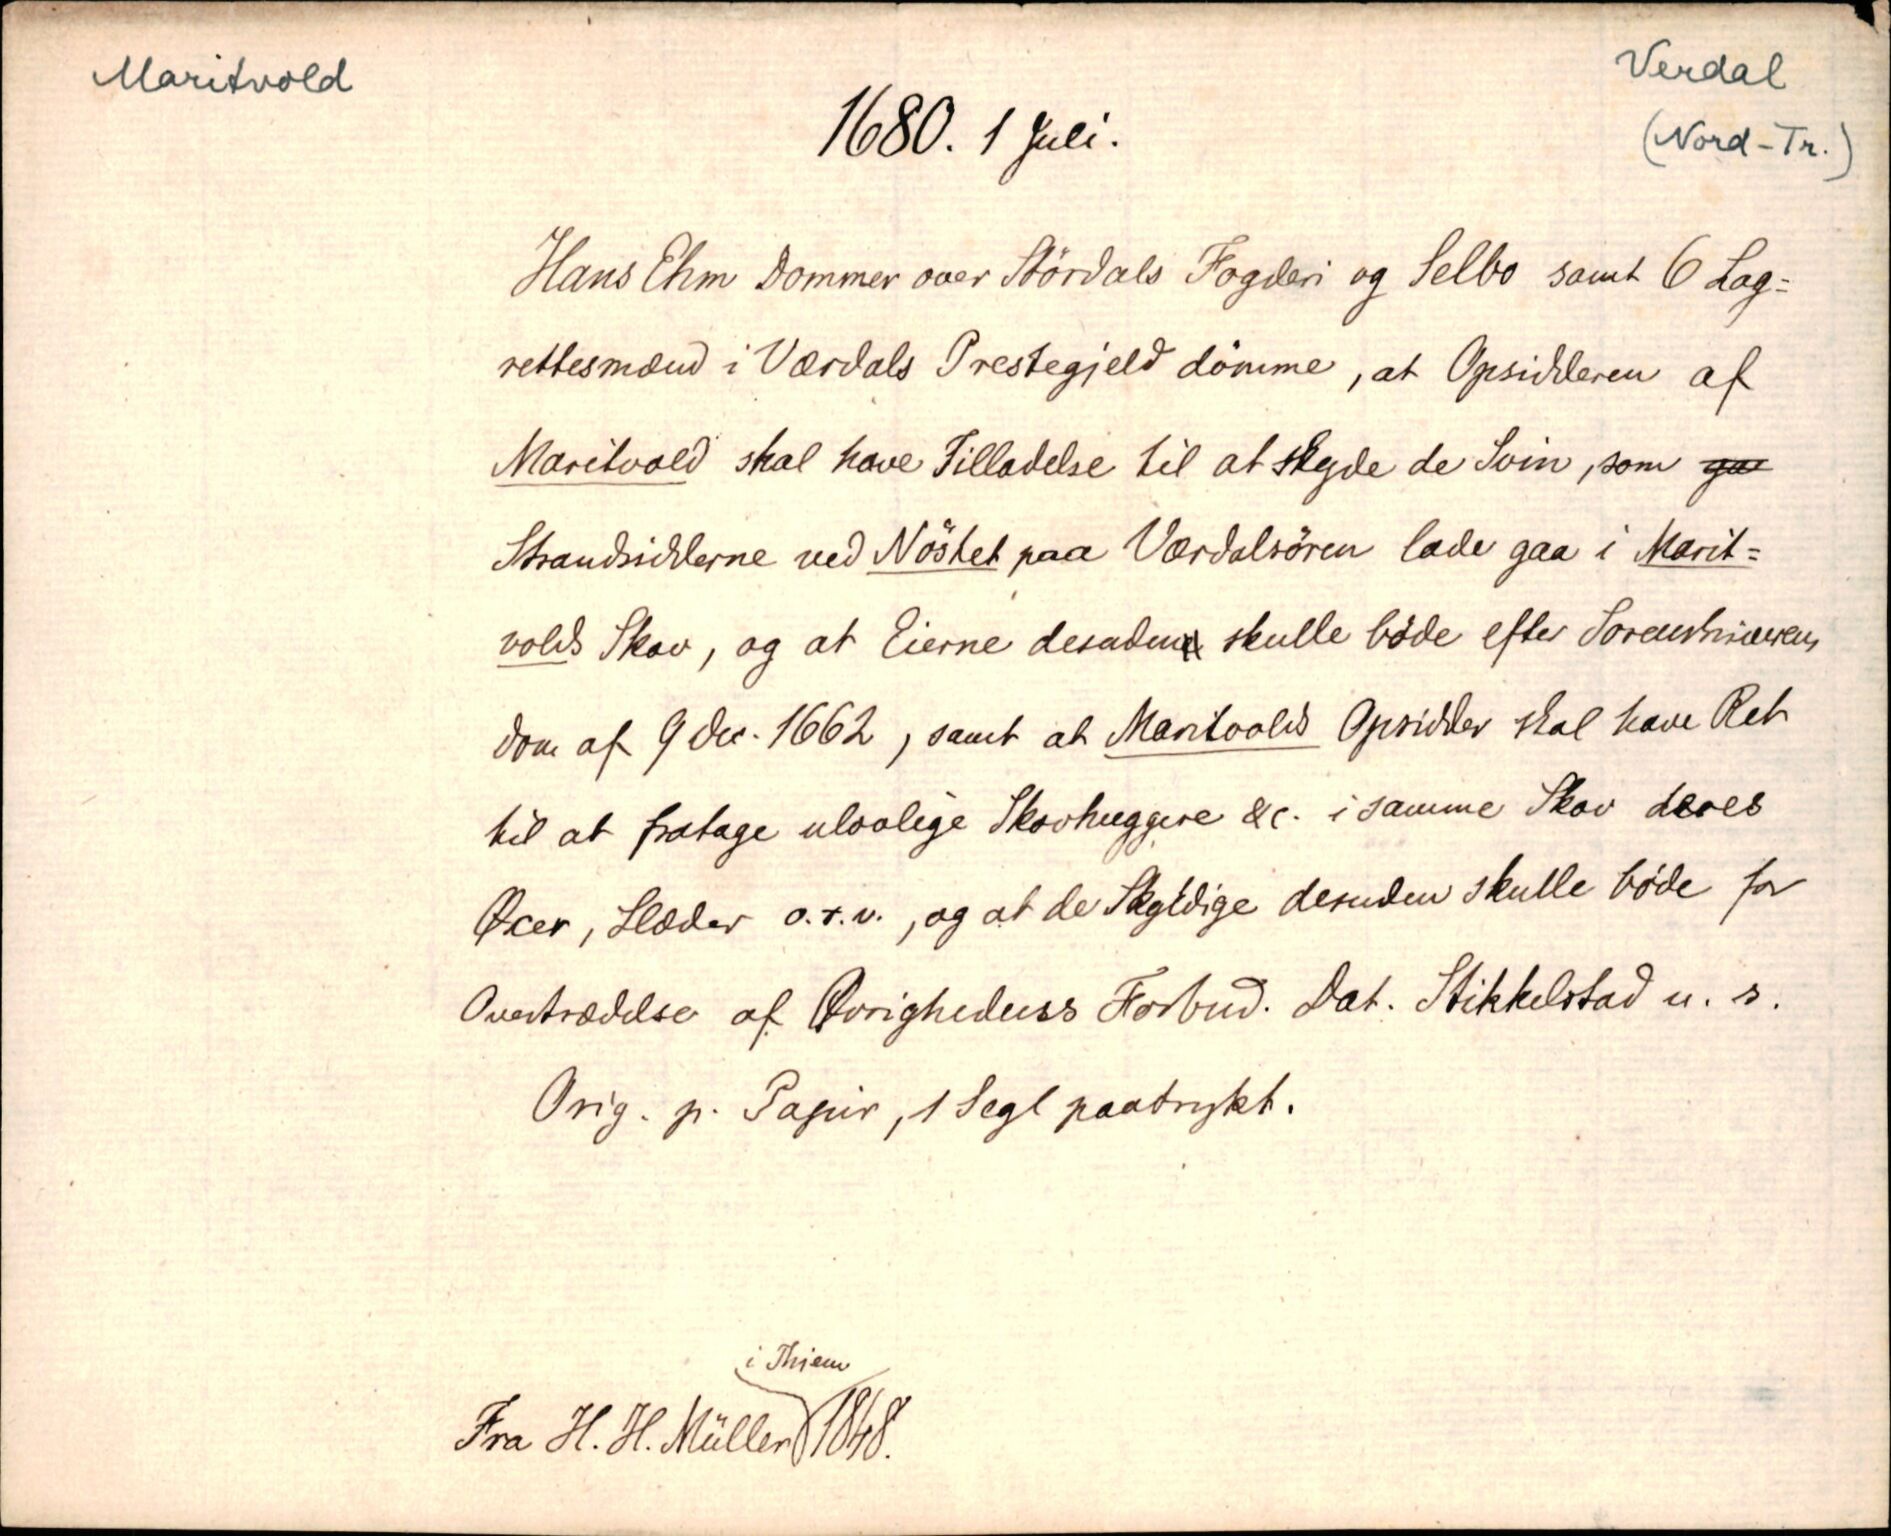 Maritvold
Verdal
(Nord-Tr.)
1680. 1 Juli.
Hans Ehm Dommer over Stördals Fogderi og Selbo samt 6 Lag=
rettesmænd i Værdals Prestegjeld dömme, at Opsidderen af
Maritvold skal have Tilladelse til at skyde de Svin, som ga
Strandsidderne ved Nöstet paa Værdalsören lade gaa i Marit=
volds Skov, og at Eierne desuden skulle bøde efter Sorenskriverens
Dom af 9 Dec. 1662, samt at Maritvolds Opsidder skal have Ret
til at fratage ulovlige Skovhuggere &c. i samme Skov deres
Øxer, Slæder o.s.v., og at de Skyldige desuden skulle bøde for
Overtrædelse af Øvrighedens Forbud. Dat. Stikkelstad u. s.
Orig. p. Papir, 1 Segl paatrykt.
i Thjem
Fra H. H. Müller 1848.